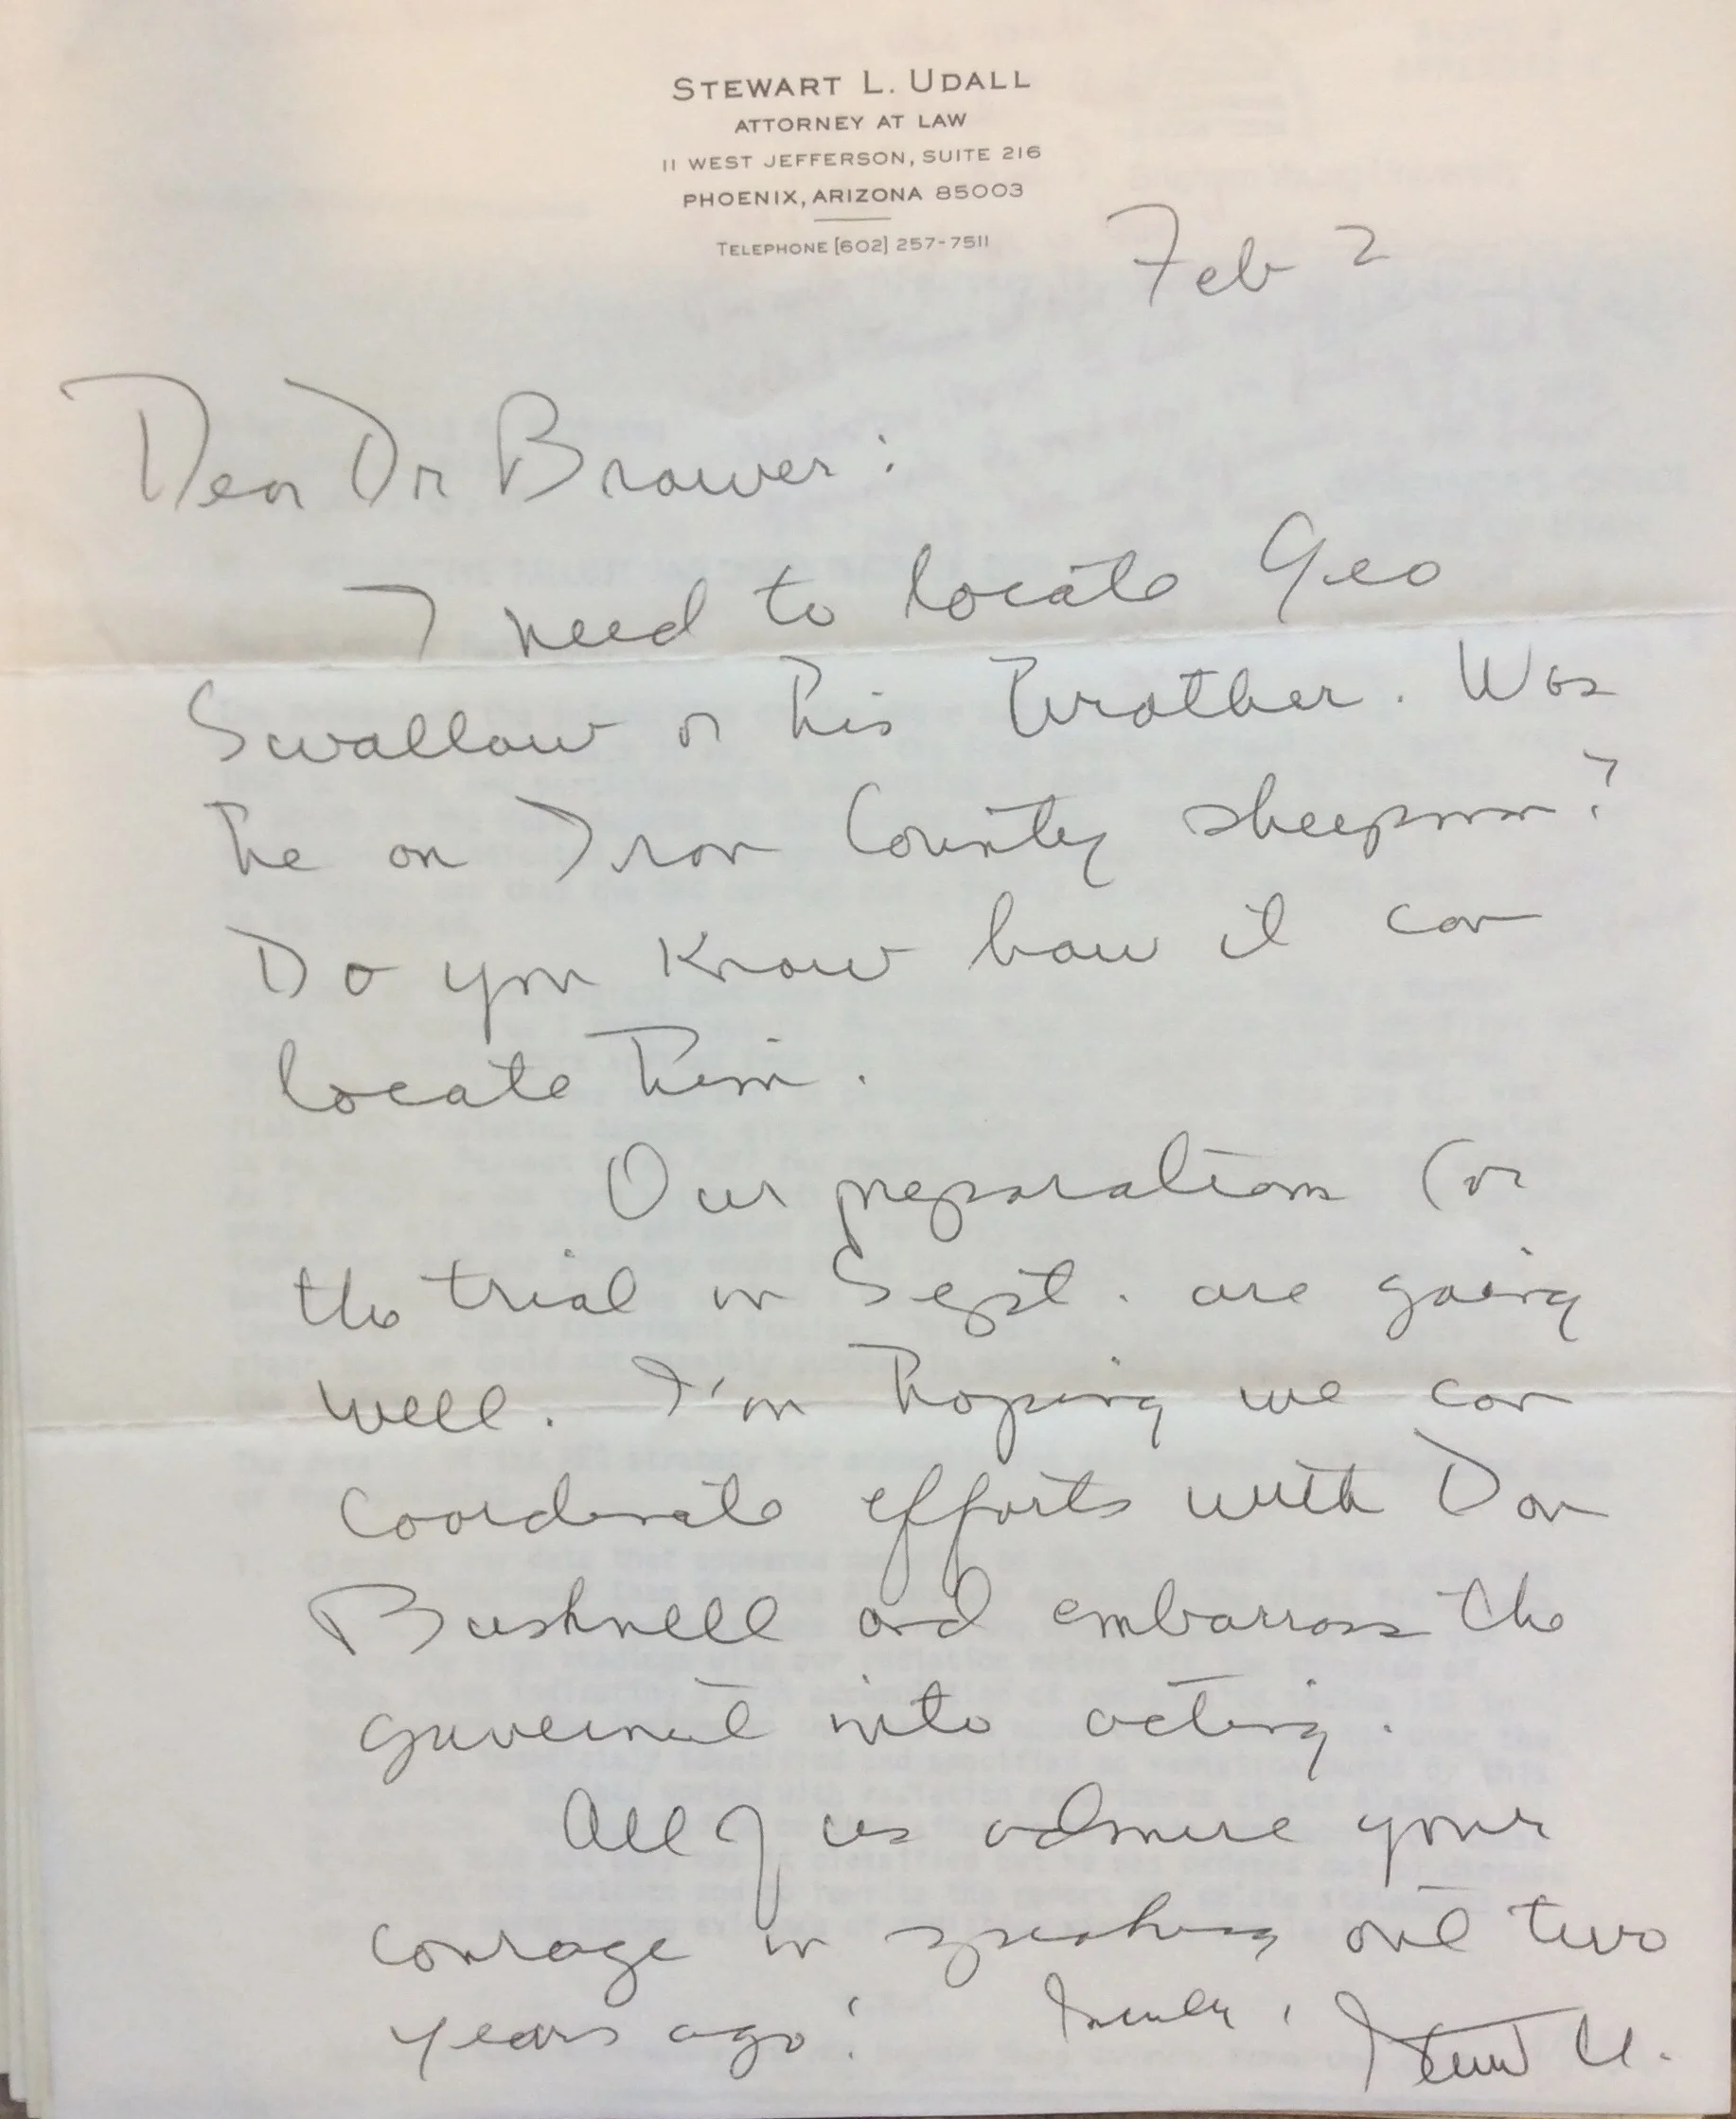 STEWART L. UDALL
ATTORNEY AT LAW
11 WEST JEFFERSON, SUITE 216
PHOENIX, ARIZONA 85003
TELEPHONE [602] 257-7511
Feb 2
Dear Dr Brower:
I need to locate Geo
Swallow or his brother. Was
he an Iron County sheepman?
Do you know how it can
locate him.
Our preparations for
the trial in Sept. are going
well. I'm hoping we can
coordinate efforts with Dan
Bushnell and embarrass the
government into acting.
All of us admire your
courage in speaking out two
years ago! Stew U.